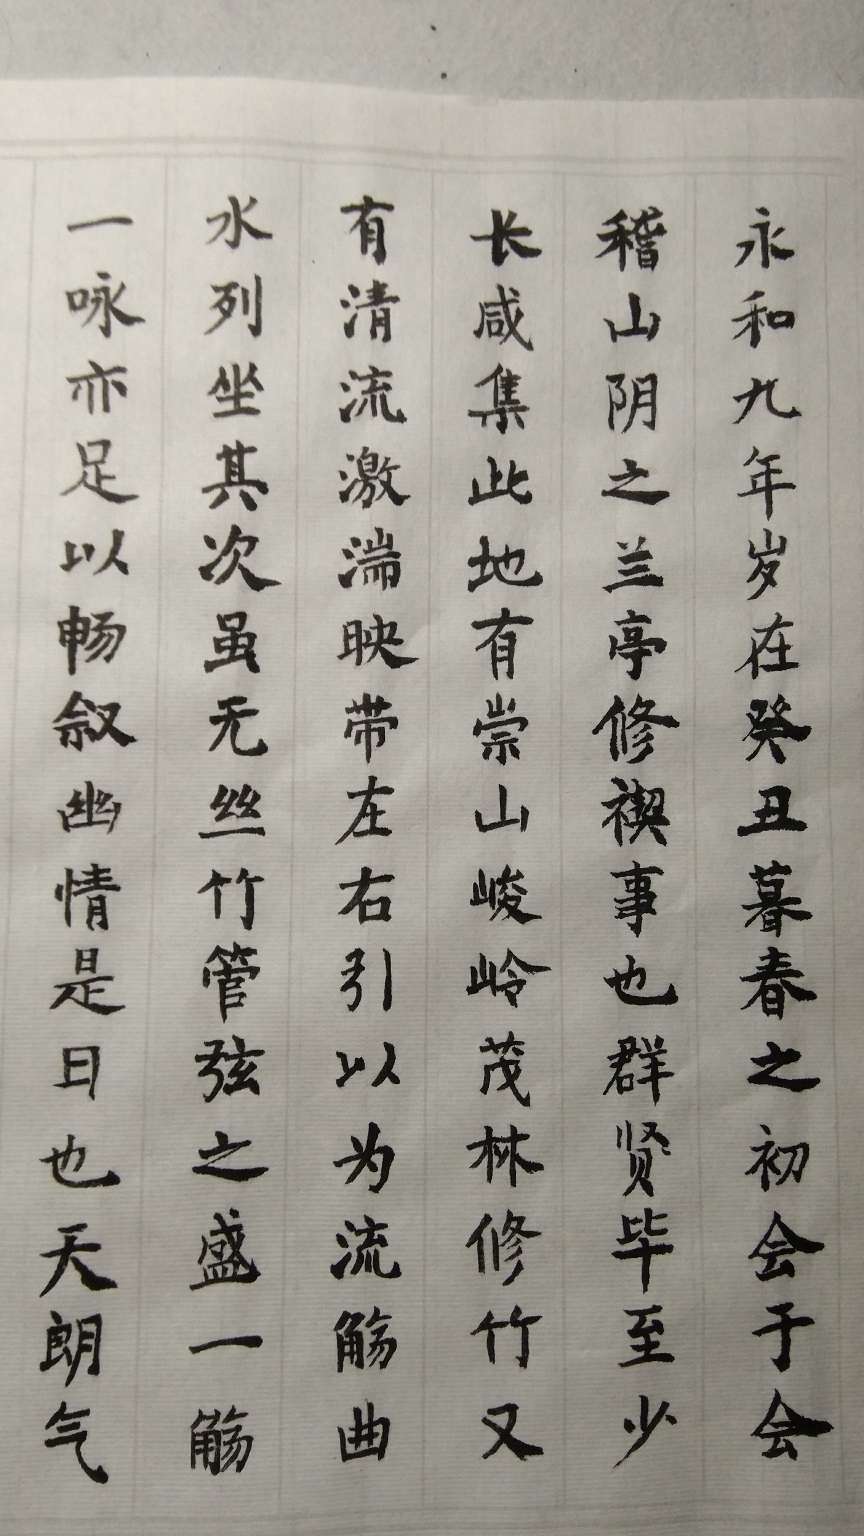 永和九年岁在癸丑暮春之初会于会
稽山阴之兰亭修禊事也群贤毕至少
长咸集此地有崇山峻岭茂林修竹又
有清流激湍映带左右引以为流觞曲
水列坐其次虽无丝竹管弦之盛一觞
一咏亦足以畅叙幽情是日也天朗气